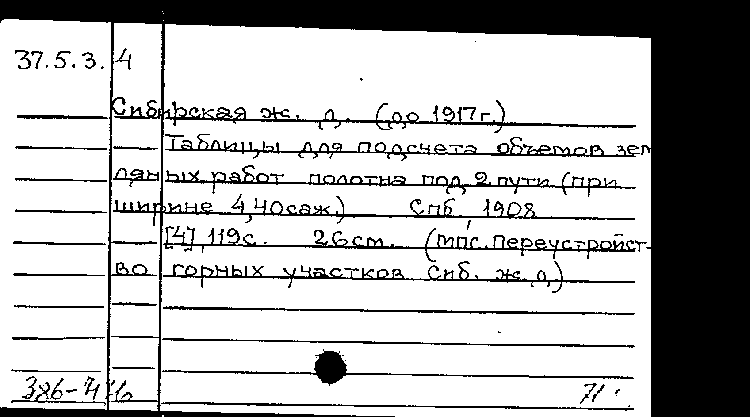 37.5.3.4
Сибирская ж. д. (до 1917г.)
Таблицы для подсчета объемов зем
ляных работ полотна под 2 пути (при
ширине 4,40 саж.) Спб, 1908
[4], 119с. 26см. (мпс. Переустройст-
во горных участков Сиб. ж.д)
71